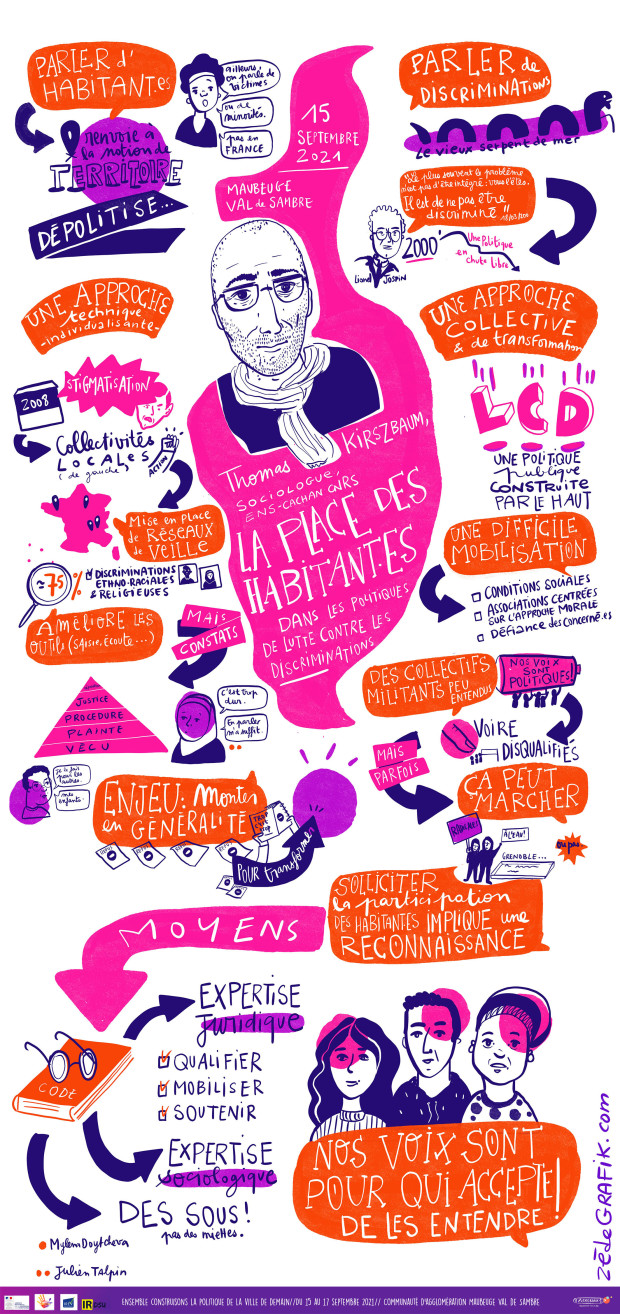 PARLER d'
HABITANT.es
ailleurs,
on parle de
victimes
ou de
minorités.
pas en
FRANCE
renvoie à
la notion de
TERRITOIRE
DÉPOLITISE...
15
SEPTEMBRE
2021
MAUBEUGE
VAL de SAMBRE
PARLER de
DISCRIMINATIONS
Le vieux serpent de mer
"Le plus souvent le problème
n'est pas d'être intégré: vous l'êtes.
Il est de ne pas être
discriminé"
2000
Lionel JOSPIN
Une Politique
en
chute libre
UNE APPROCHE
technique
-individualisante-
STIGMATISATION
2008
Collectivités
LOCALES
(de gauche)
ACTION
Mise en place
de RÉSEAUX
de VEILLE
≈75%
DISCRIMINATIONS
ETHNO-RACIALES
& RELIGIEUSES
AMÉLIORE LES
OUTILS (SAISIE, ÉCOUTE...)
MAIS
CONSTATS
JUSTICE
PROCEDURE
PLAINTE
VÉCU
C'est trop
dur.
En parler
m'a suffit.
Je le fais
pour les
autres.
mes
enfants.
ENJEU: Monter
en GÉNÉRALITÉ
TROP
C'EST
TROP
POUR transformer
Thomas KIRSZBAUM,
SOCIOLOGUE,
ENS-CACHAN CNRS
LA PLACE DES
HABITANT.ES
DANS LES POLITIQUES
DE LUTTE CONTRE LES
DISCRIMINATIONS
UNE APPROCHE
COLLECTIVE
& de transformation
LCD
UNE POLITIQUE
publique
CONSTRUITE
PAR LE HAUT
UNE DIFFICILE
MOBILISATION
CONDITIONS SOCIALES
ASSOCIATIONS CENTRÉES
SUR L'APPROCHE MORALE
DÉFIANCE DES CONCERNÉ.ES
DES COLLECTIFS
MILITANTS PEU
ENTENDUS
NOS VOIX
SONT
POLITIQUES!
VOIRE
DISQUALIFIÉS
MAIS
PARFOIS
ÇA PEUT
MARCHER
À L'EAU!
GRENOBLE...
ou pas
SOLLICITER
la participation
DES HABITANTES IMPLIQUE une
RECONNAISSANCE
MOYENS
CODE
EXPERTISE
juridique
QUALIFIER
MOBILISER
SOUTENIR
EXPERTISE
sociologique
DES SOUS!
pas des miettes.
Mylem Doytcheva
Julien Talpin
NOS VOIX SONT
POUR QUI ACCEPTE
DE LES ENTENDRE!
zédeGRAFIK.com
IRtsu
ENSEMBLE CONSTRUISONS LA POLITIQUE DE LA VILLE DE DEMAIN//DU 15 AU 17 SEPTEMBRE 2021// COMMUNAUTÉ D'AGGLOMÉRATION MAUBEUGE VAL DE SAMBRE